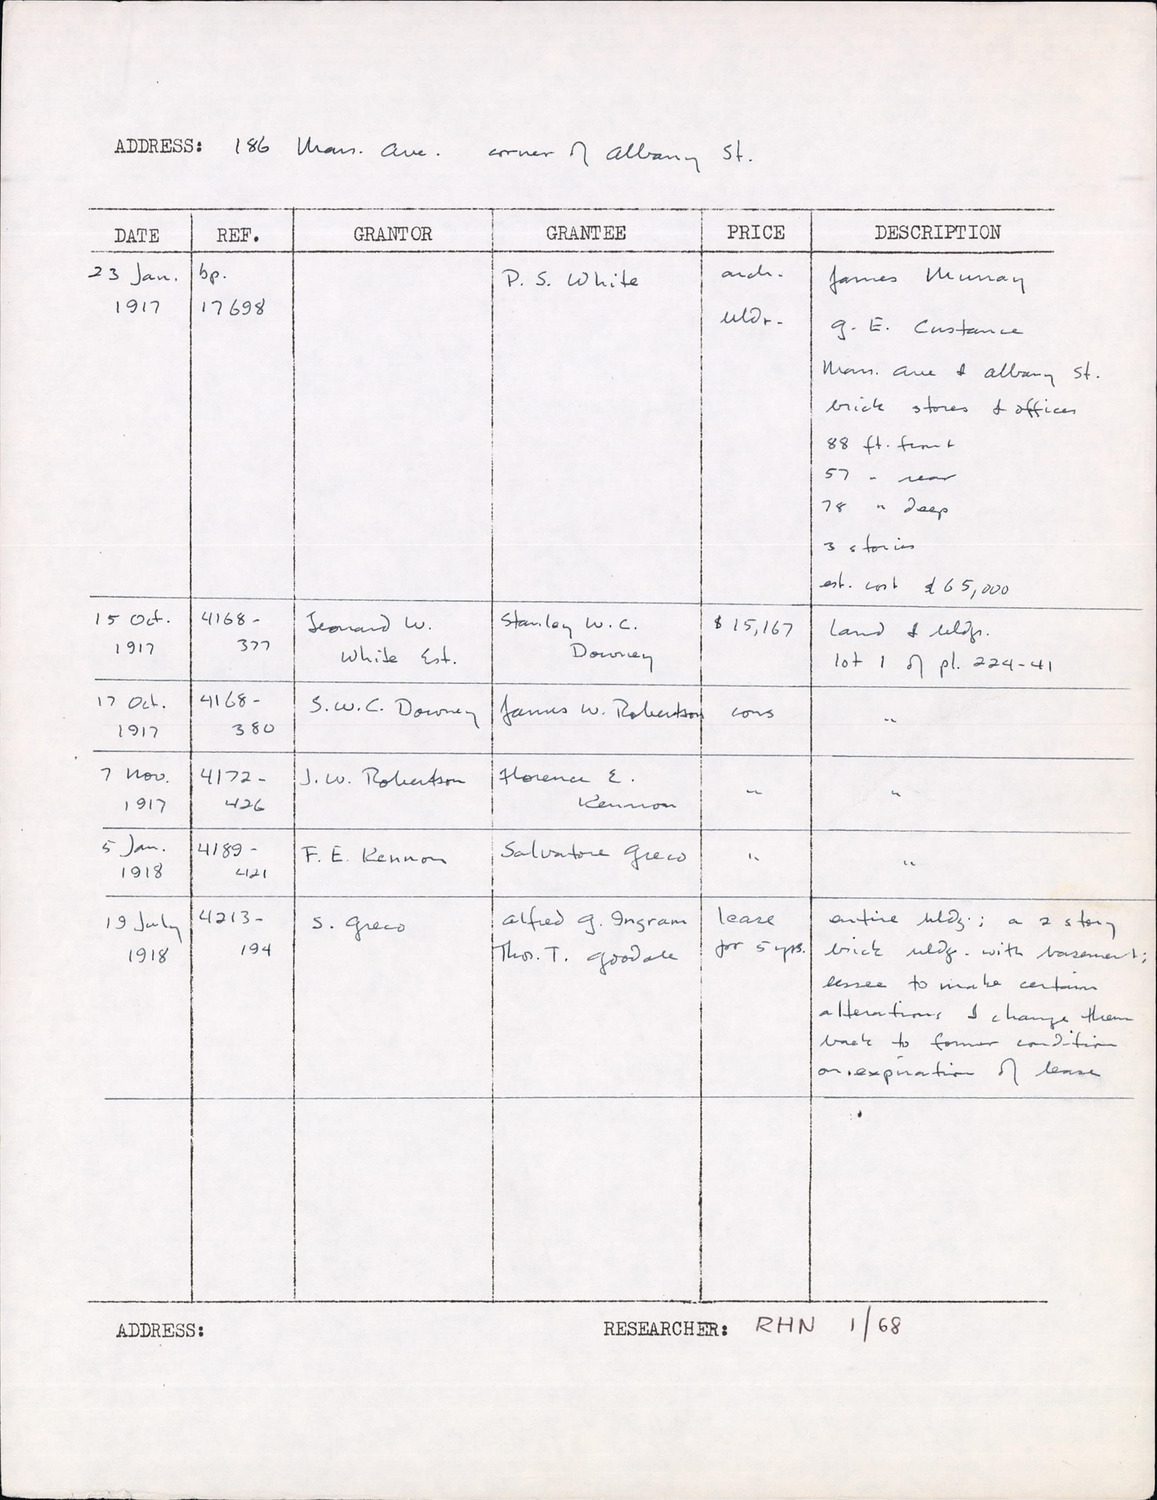 ADDRESS: 186 Mass. Ave. corner of Albany St.
DATE REF. GRANTOR GRANTEE PRICE DESCRIPTION
23 Jan. bp. P. S. White arch. James Murray
1917 17698 bldr. G. E. Custance
Mass. Ave & Albany St.
brick stores & offices
88 ft. front
57 " rear
78 " deep
3 stories
est. cost $65,000
15 Oct. 4168- Leonard W. Stanley W. C. $15,167 land & bldgs.
1917 377 White Est. Downey lot 1 of pl. 224-41
17 Oct. 4168- S.W.C. Downey James W. Robertson cons "
1917 380
7 Nov. 4172- J. W. Robertson Florence E. " "
1917 426 Kennon
5 Jan. 4189- F. E. Kennon Salvatore Greco " "
1918 421
19 July 4213- S. Greco Alfred G. Ingram lease entire bldg.; a 2 story
1918 194 Thos. T. Goodale for 5 yrs. brick bldg. with basement;
lessee to make certain
alterations & change them
back to former condition
on expiration of lease
ADDRESS: RESEARCHER: RHN 1/68